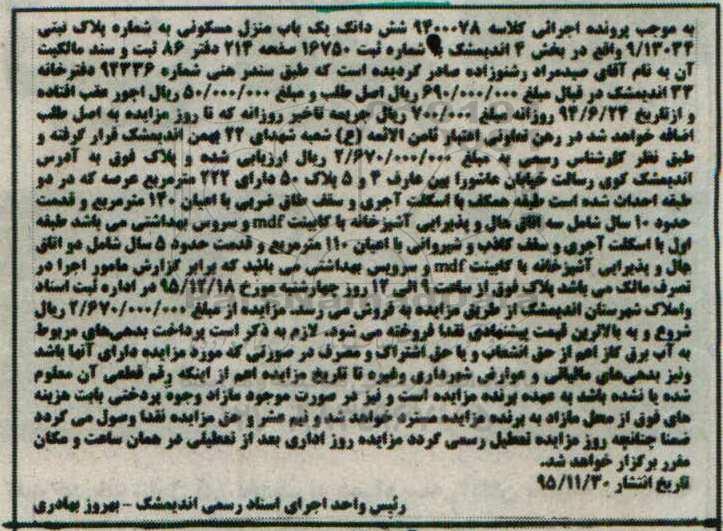 به موجب پرونده اجرائی کلاسه ۹۴۰۰۰۷۸ شش دانگ یک باب منزل مسکونی به شماره پلاک ثبتی
۹/۱۳۰۳۴ واقع در بخش ۴ اندیمشک به شماره ثبت ۱۶۷۵۰ صفحه ۲۱۳ دفتر ۸۶ ثبت و سند مالکیت
آن به نام آقای صیدمراد رشنوزاده صادر گردیده است که طبق سند رهنی شماره ۹۲۳۳۶ دفترخانه
۳۳ اندیمشک در قبال مبلغ ۶۹۰/۰۰۰/۰۰۰ ریال اصل طلب و مبلغ ۵۰/۰۰۰/۰۰۰ ریال اجور عقب افتاده
و ازتاریخ ۹۴/۶/۲۴ روزانه مبلغ ۷۰۰/۰۰۰ ریال جریمه تاخیر روزانه که تا روز مزایده به اصل طلب
اضافه خواهد شد در رهن تعاونی اعتبار ثامن الائمه (ع) شعبه شهدای ۲۲ بهمن اندیمشک قرار گرفته و
طبق نظر کارشناس رسمی به مبلغ ۲/۶۷۰/۰۰۰/۰۰۰ ریال ارزیابی شده و پلاک فوق به آدرس
اندیمشک کوی رسالت خیابان عاشورا بین عارف ۴ و ۵ پلاک ۵۰ دارای ۲۲۲ مترمربع عرصه که در دو
طبقه احداث شده است طبقه همکف با اسکلت آجری و سقف طاق ضربی با اعیان ۱۴۰ مترمربع و قدمت
حدود ۱۰ سال شامل سه اتاق هال و پذیرایی آشپزخانه با کابینت mdf و سروس بهداشتی می باشد طبقه
اول با اسکلت آجری و سقف کاذب و شیروانی با اعیان ۱۱۰ مترمربع و قدمت حدود ۵ سال شامل دو اتاق
هال و پذیرایی آشپزخانه با کابینت mdf و سرویس بهداشتی می باشد که برابر گزارش مامور اجرا در
تصرف مالک می باشد پلاک فوق از ساعت ۹ الی ۱۲ روز چهارشنبه مورخ ۹۵/۱۲/۱۸ در اداره ثبت اسناد
واملاک شهرستان اندیمشک از طریق مزایده به فروش می رسد. مزایده از مبلغ ۲/۶۷۰/۰۰۰/۰۰۰ ریال
شروع و به بالاترین قیمت پیشنهادی نقدا فروخته می شود، لازم به ذکر است پرداخت بدهی‌های مربوط
به آب برق گاز اهم از حق انشعاب و یا حق اشتراک و مصرف در صورتی که مورد مزایده دارای آنها باشد
ونیز بدهی‌های مالیاتی و عوارض شهرداری وغیره تا تاریخ مزایده اهم از اینکه رقم قطعی آن معلوم
شده یا نشده باشد به عهده برنده مزایده است و نیز در صورت موجود مازاد وجوه پردختی بابت هزینه
های فوق از محل مازاد به برنده مزایده مسترد خواهد شد و نیم عشر و حق مزایده نقدا وصول می گردد
ضمنا چنانچه روز مزایده تعطیل رسمی گردد مزایده روز اداری بعد از تعطیلی در همان ساعت و مکان
مقرر برگزار خواهد شد.
تاریخ انتشار ۹۵/۱۱/۳۰
رئیس واحد اجرای اسناد رسمی اندیمشک – بهروز بهادری